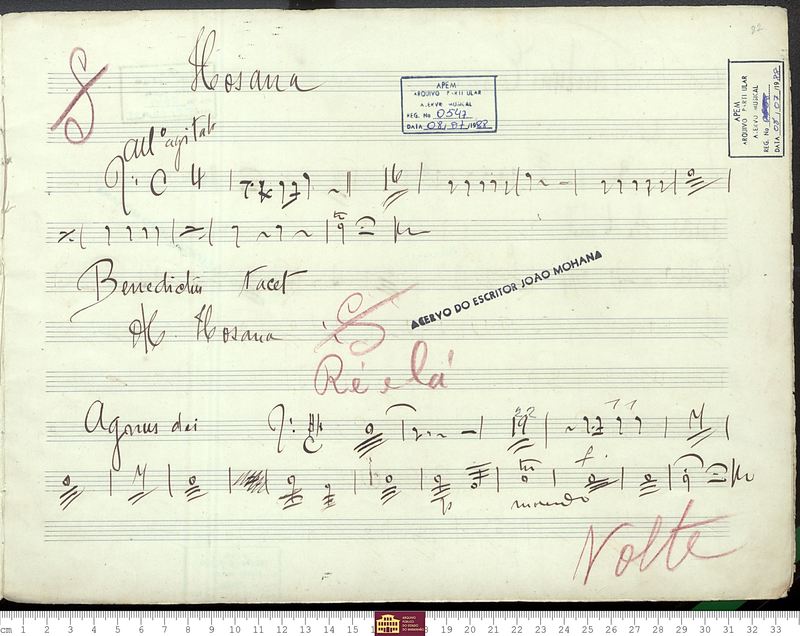 Hosana
82
APEM
ARQUIVO PARTICULAR
ACERVO MUSICAL
REG. No 0547
DATA 08/07/1988
APEM
ARQUIVO PARTICULAR
ACERVO MUSICAL
REG. No
DATA 08/07/1988
All° agitato
4 16
Benedictus tacet
Hosana
ACERVO DO ESCRITOR JOÃO MOHANA
Ré e lá
Agnus dei
22
19
11
f.
morendo
Volte
cm 1 2 3 4 5 6 7 8 9 10 11 12 13 14 15 18 19 20 21 22 23 24 25 26 27 28 29 30 31 32 33